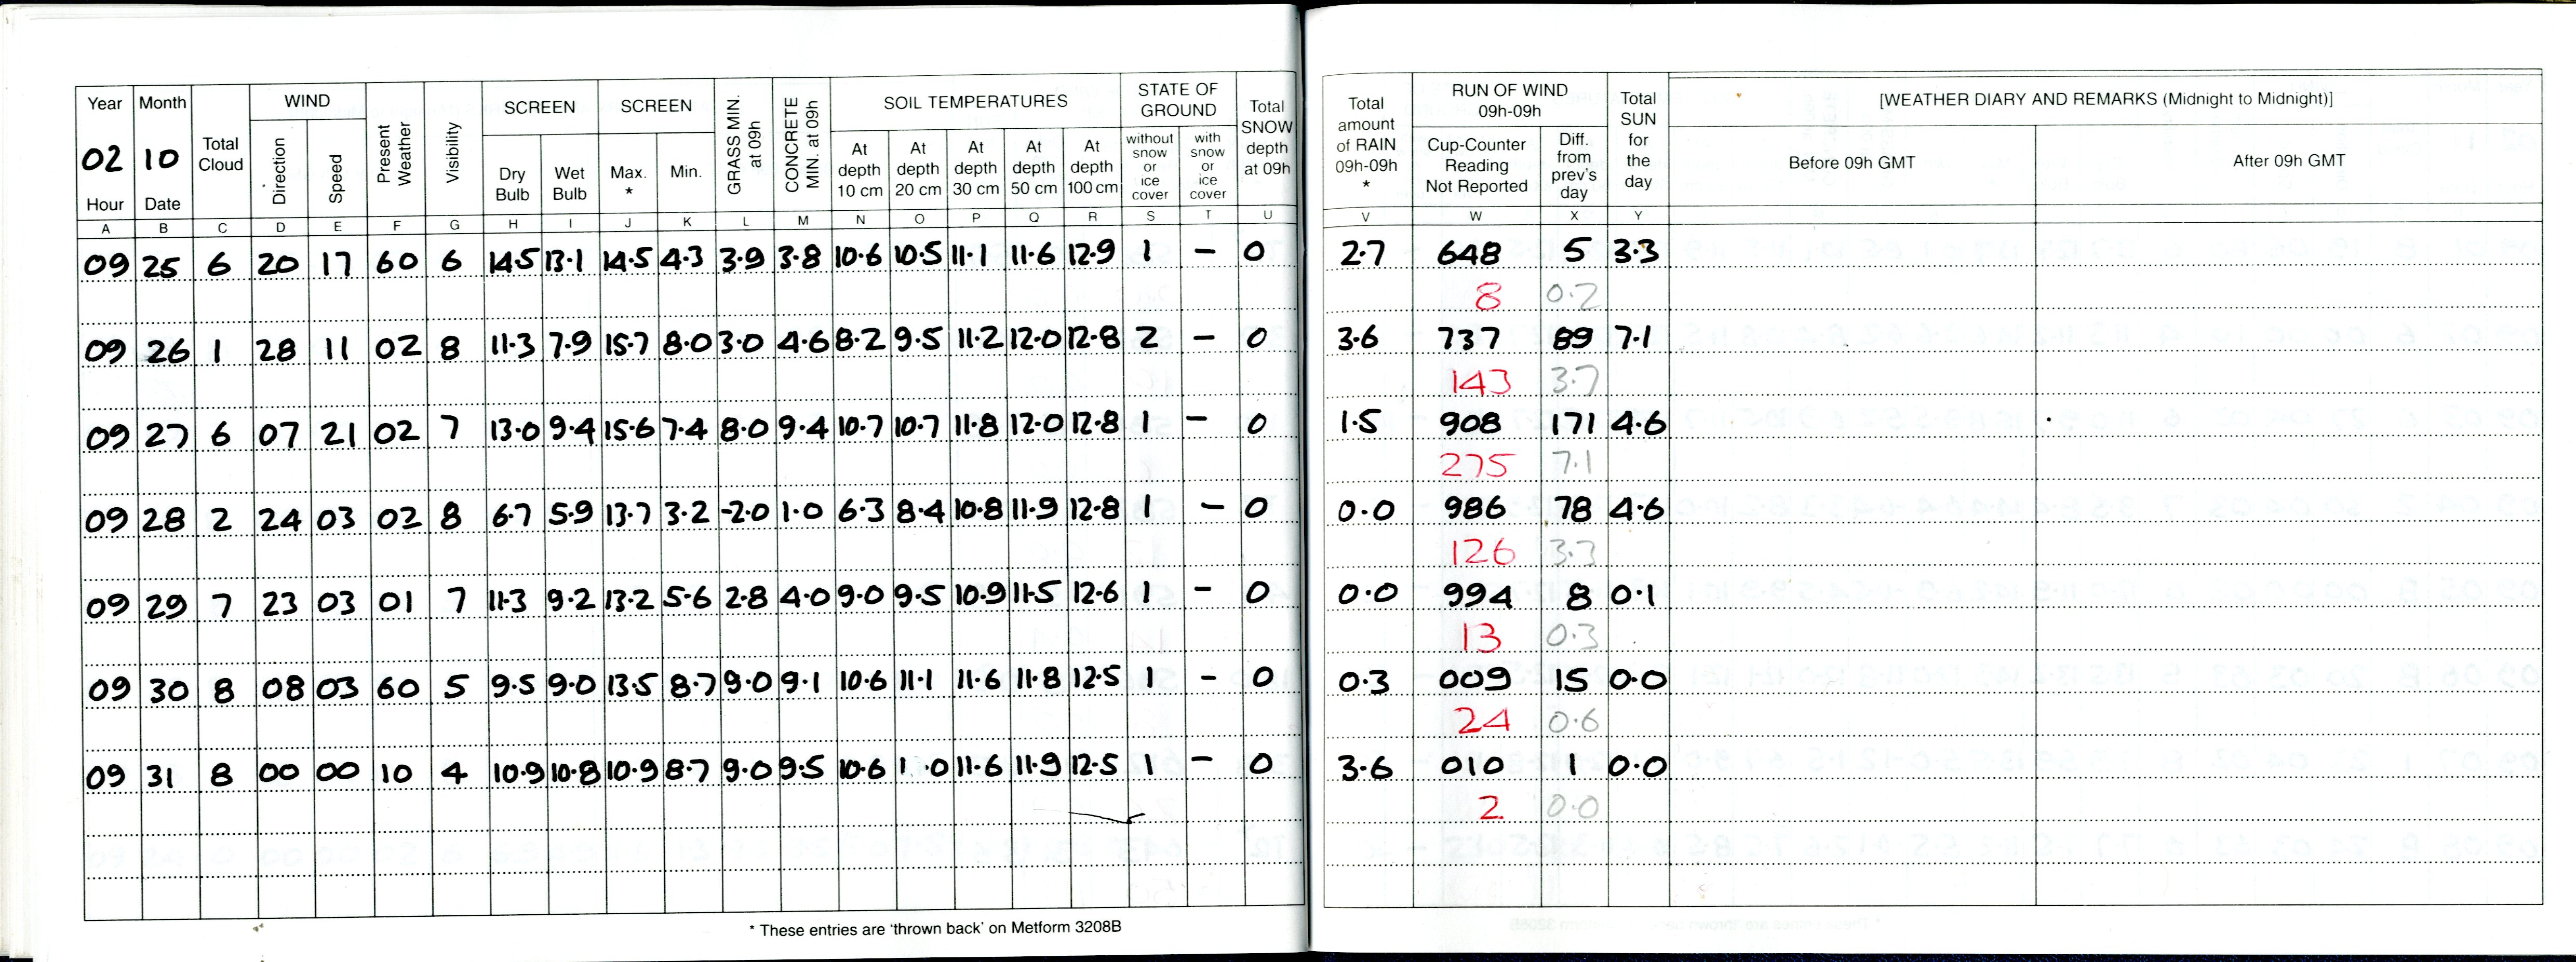 Year Month Total Cloud WIND Present Weather Visibility SCREEN SCREEN GRASS MIN. at 09h CONCRETE MIN. at 09h SOIL TEMPERATURES STATE OF GROUND Total SNOW depth at 09h Total amount of RAIN 09h-09h * RUN OF WIND 09h-09h Total SUN for the day [WEATHER DIARY AND REMARKS (Midnight to Midnight)]
02 10 Direction Speed Dry Bulb Wet Bulb Max. * Min. At depth 10 cm At depth 20 cm At depth 30 cm At depth 50 cm At depth 100 cm without snow or ice cover with snow or ice cover Cup-Counter Reading Not Reported Diff. from prev's day Before 09h GMT After 09h GMT
Hour Date
A B C D E F G H I J K L M N O P Q R S T U V W X Y
09 25 6 20 17 60 6 14.5 13.1 14.5 4.3 3.9 3.8 10.6 10.5 11.1 11.6 12.9 1 – 0 2.7 648 5 3.3
8 0.2
09 26 1 28 11 02 8 11.3 7.9 15.7 8.0 3.0 4.6 8.2 9.5 11.2 12.0 12.8 2 – 0 3.6 737 89 7.1
143 3.7
09 27 6 07 21 02 7 13.0 9.4 15.6 7.4 8.0 9.4 10.7 10.7 11.8 12.0 12.8 1 – 0 1.5 908 171 4.6
275 7.1
09 28 2 24 03 02 8 6.7 5.9 13.7 3.2 -2.0 1.0 6.3 8.4 10.8 11.9 12.8 1 – 0 0.0 986 78 4.6
126 3.3
09 29 7 23 03 01 7 11.3 9.2 13.2 5.6 2.8 4.0 9.0 9.5 10.9 11.5 12.6 1 – 0 0.0 994 8 0.1
13 0.3
09 30 8 08 03 60 5 9.5 9.0 13.5 8.7 9.0 9.1 10.6 11.1 11.6 11.8 12.5 1 – 0 0.3 009 15 0.0
24 0.6
09 31 8 00 00 10 4 10.9 10.8 10.9 8.7 9.0 9.5 10.6 11.6 11.9 12.5 1 – 0 3.6 010 1 0.0
2 0.0
* These entries are 'thrown back' on Metform 3208B